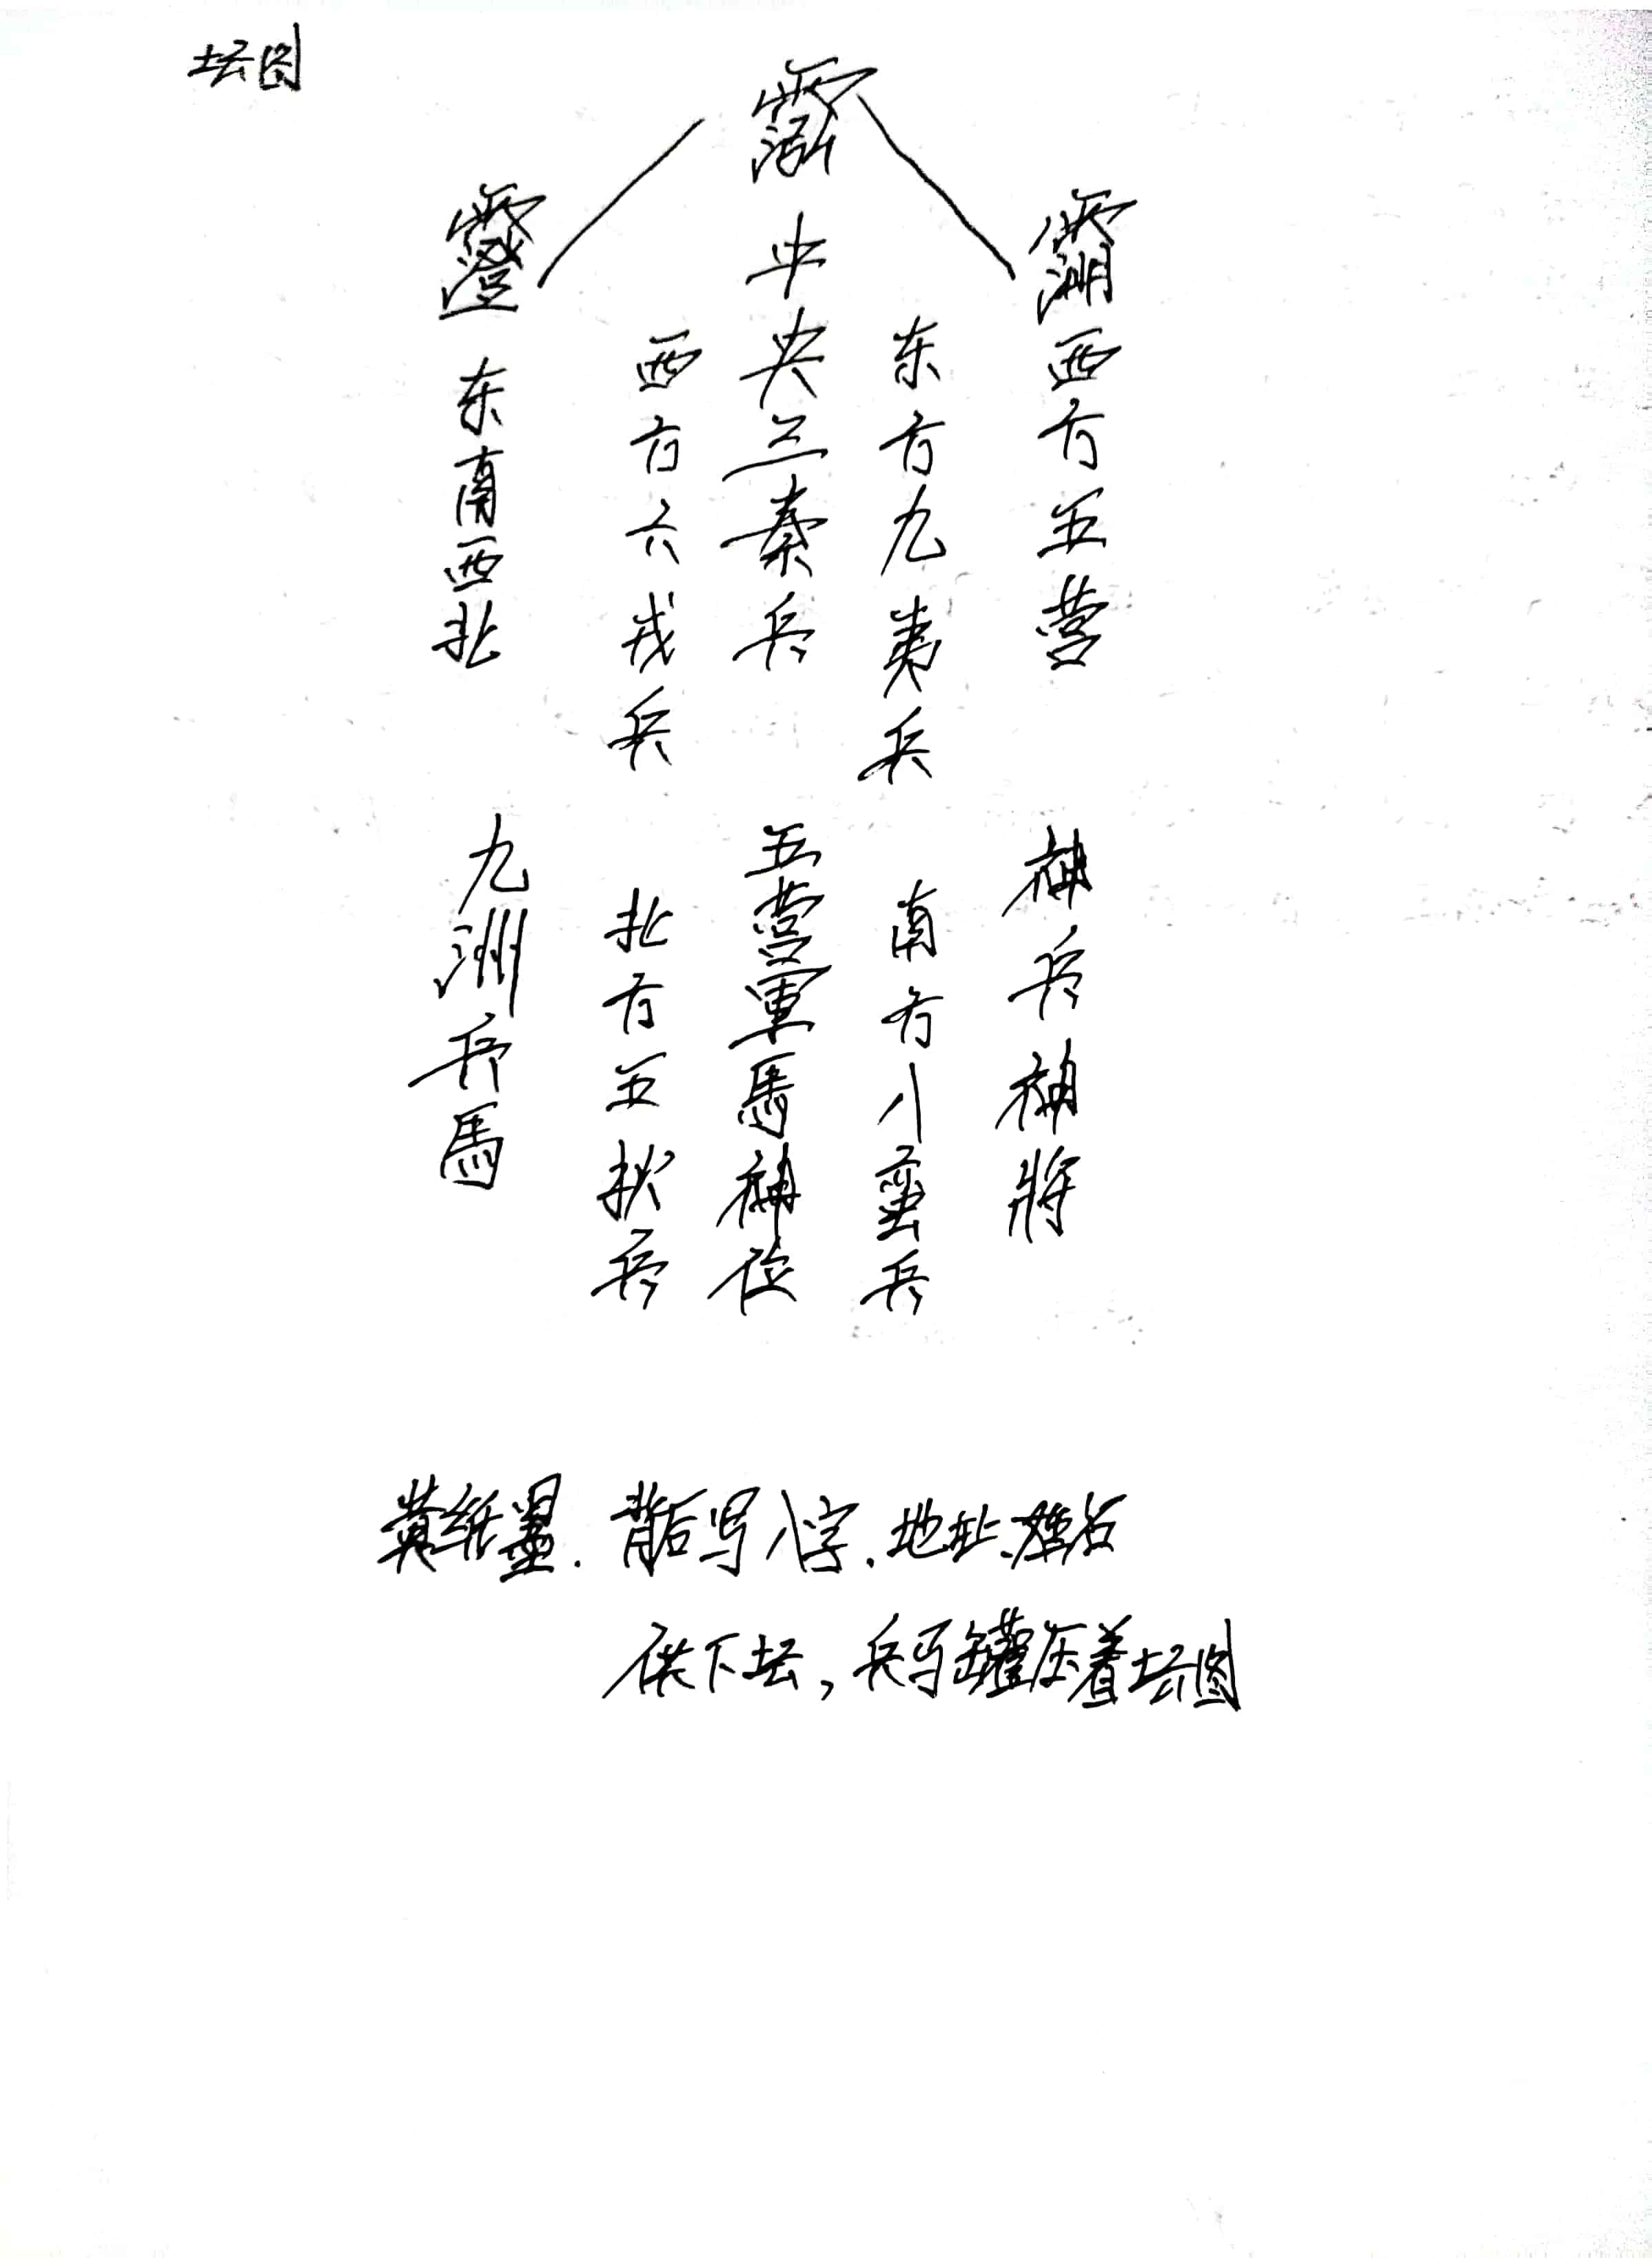 坛图
西方五营 神兵神將
东方九夷兵 南方八蛮兵
中央三秦兵 五营軍馬神位
西方六戎兵 北方五狄兵
东南西北 九洲兵馬
黄纸畫.背后写八字.地址.姓名
供下坛，兵马罐压着坛图